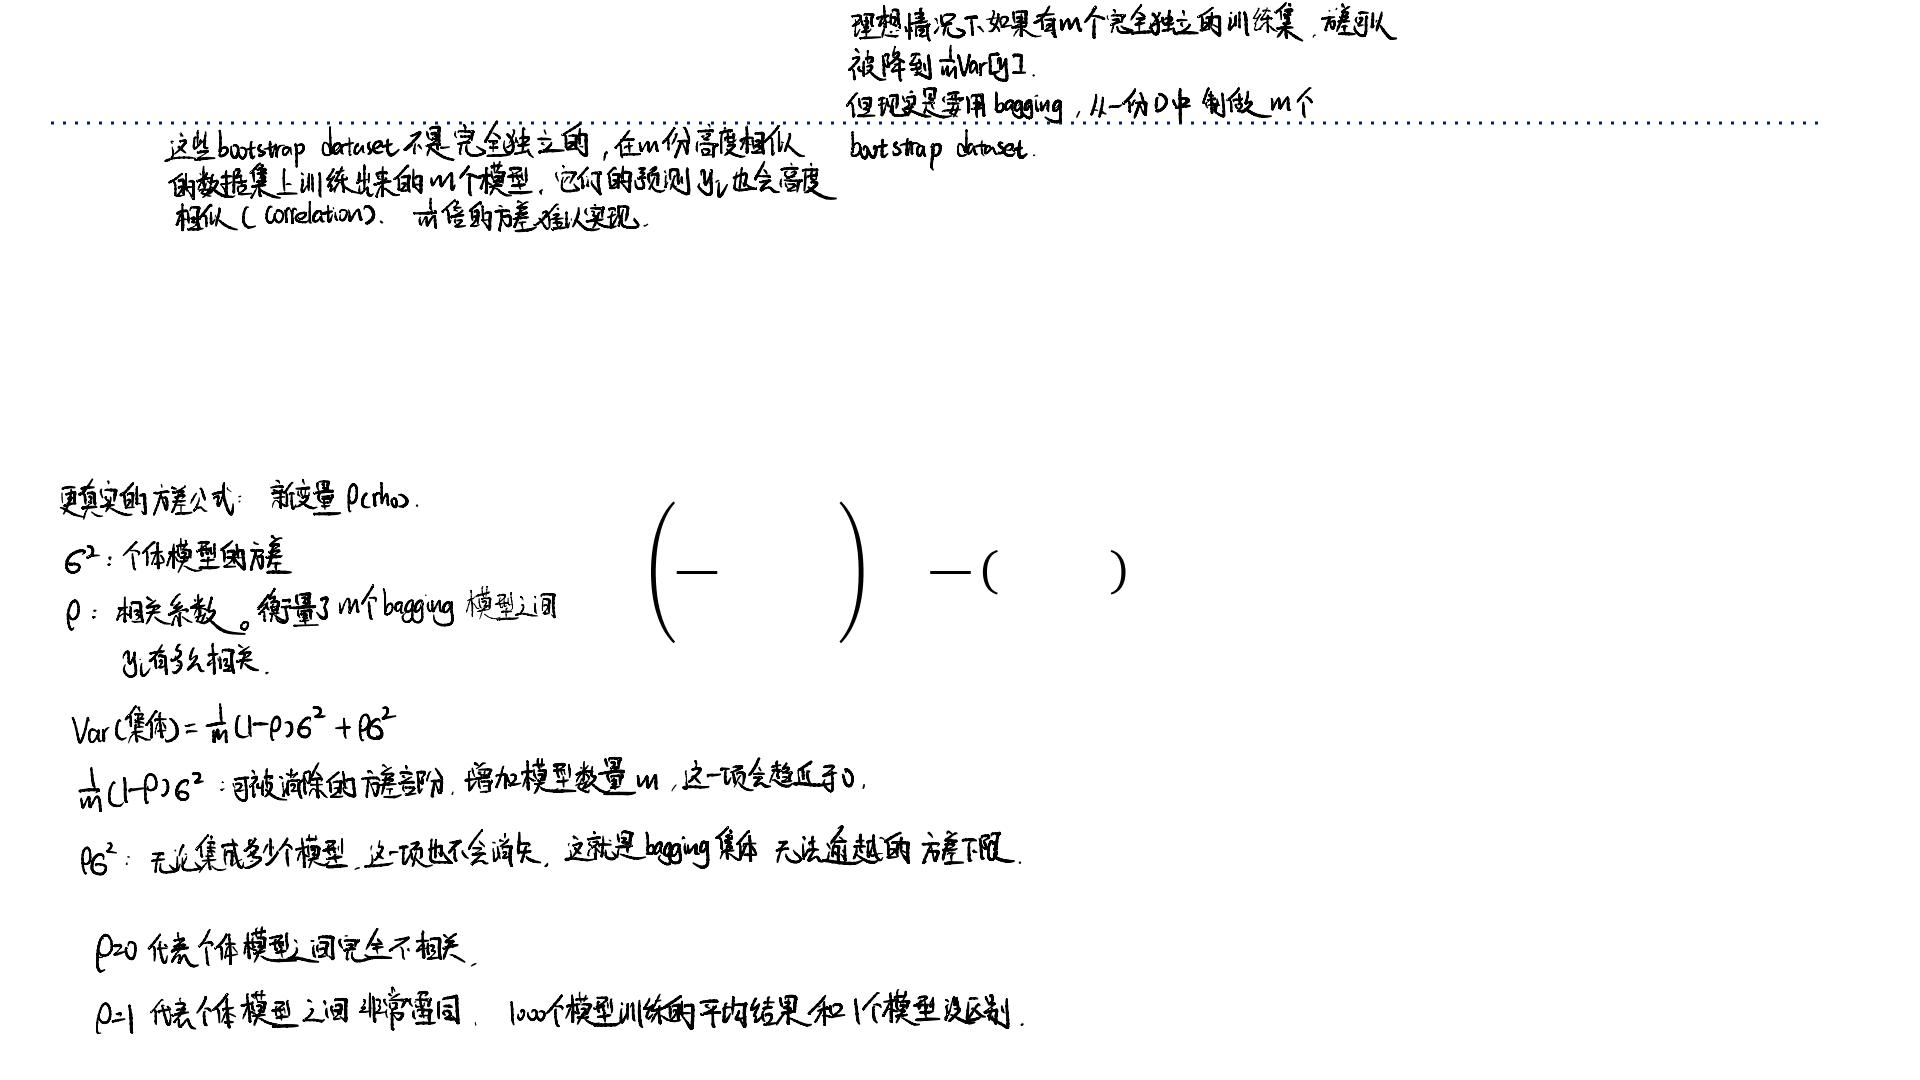 理想情况下如果有m个完全独立的训练集，方差可以
被降到 1/m Var[y].
但现实是要用 bagging，从一份D中 制做 m个
bootstrap dataset.
这些bootstrap dataset不是完全独立的，在m份高度相似
的数据集上训练出来的m个模型，它们的预测 yᵢ 也会高度
相似（correlation）. 1/m倍的方差难以实现.
更真实的方差公式： 新变量 ρ(rho).
σ²：个体模型的方差
ρ：相关系数。衡量了m个bagging 模型之间
yᵢ有多么相关.
( — ) — ( )
Var(集体) = 1/m (1-ρ)σ² + ρσ²
1/m (1-ρ)σ²：可被消除的方差部分. 增加模型数量m，这一项会趋近于0.
ρσ²：无论集成多少个模型，这一项也不会消失，这就是bagging集体 无法逾越的 方差下限.
ρ=0 代表个体模型之间完全不相关.
ρ=1 代表个体模型之间 非常雷同. 1000个模型训练的平均结果和1个模型没区别.